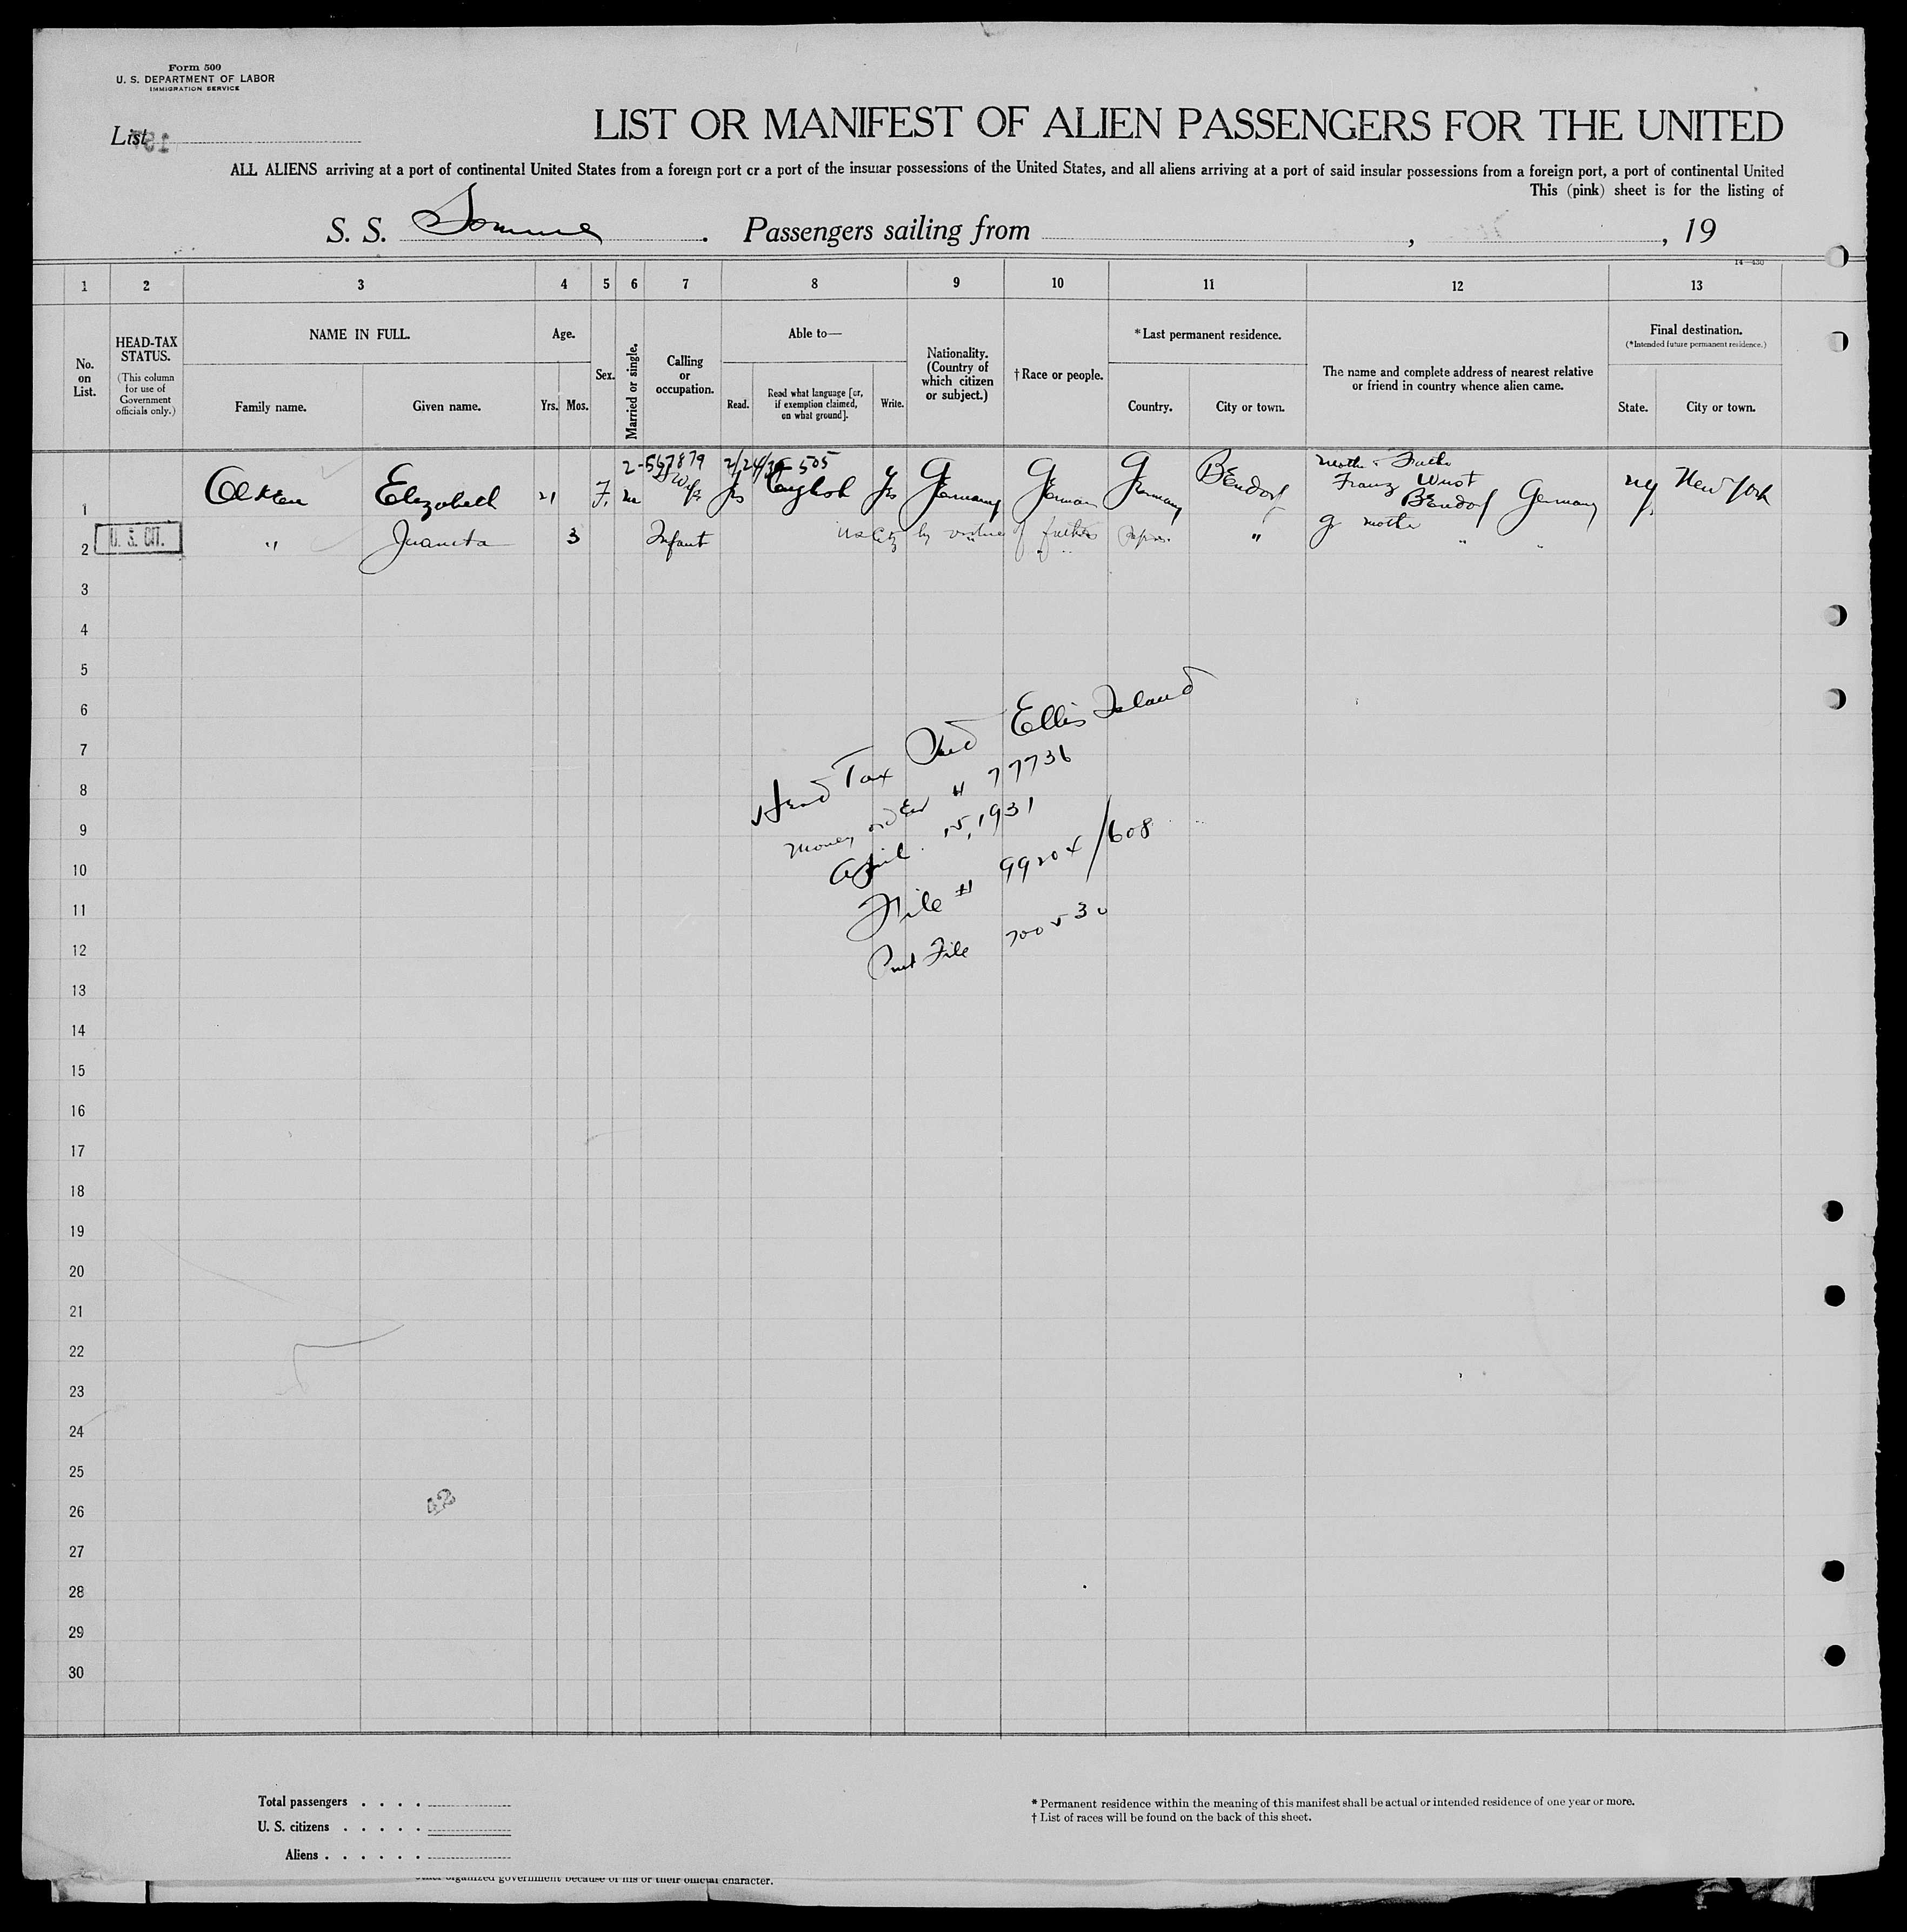 Form 500
U. S. DEPARTMENT OF LABOR
IMMIGRATION SERVICE
List
LIST OR MANIFEST OF ALIEN PASSENGERS FOR THE UNITED
ALL ALIENS arriving at a port of continental United States from a foreign port or a port of the insular possessions of the United States, and all aliens arriving at a port of said insular possessions from a foreign port, a port of continental United
This (pink) sheet is for the listing of
S. S. Somme . Passengers sailing from , , 19
14—430
1 2 3 4 5 6 7 8 9 10 11 12 13
No. on List.
HEAD-TAX STATUS.
(This column for use of Government officials only.)
NAME IN FULL.
Family name. Given name.
Age.
Yrs. Mos.
Sex.
Married or single.
Calling or occupation.
Able to—
Read. Read what language [or, if exemption claimed, on what ground]. Write.
Nationality. (Country of which citizen or subject.)
† Race or people.
* Last permanent residence.
Country. City or town.
The name and complete address of nearest relative or friend in country whence alien came.
Final destination.
(*Intended future permanent residence.)
State. City or town.
2-567879 2/24/36 505
1 Elizabeth 21 F. m Wife Yes English Yes Germany German Germany Bendorf Franz Wust Bendorf Germany NY New York
2 U. S. CIT. " Juanita 3 Infant US Citz by virtue of fathers " g mother " "
3
4
5
6
7
8
9
10
11
12
13
14
15
16
17
18
19
20
21
22
23
24
25
26
27
28
29
30
Head Tax Paid Ellis Island
Money order # 77736
April 15, 1931
File # 99204/608
File 700530
42
Total passengers . . . .
U. S. citizens . . . . .
Aliens . . . . . .
* Permanent residence within the meaning of this manifest shall be actual or intended residence of one year or more.
† List of races will be found on the back of this sheet.
other organized government because of his or their official character.